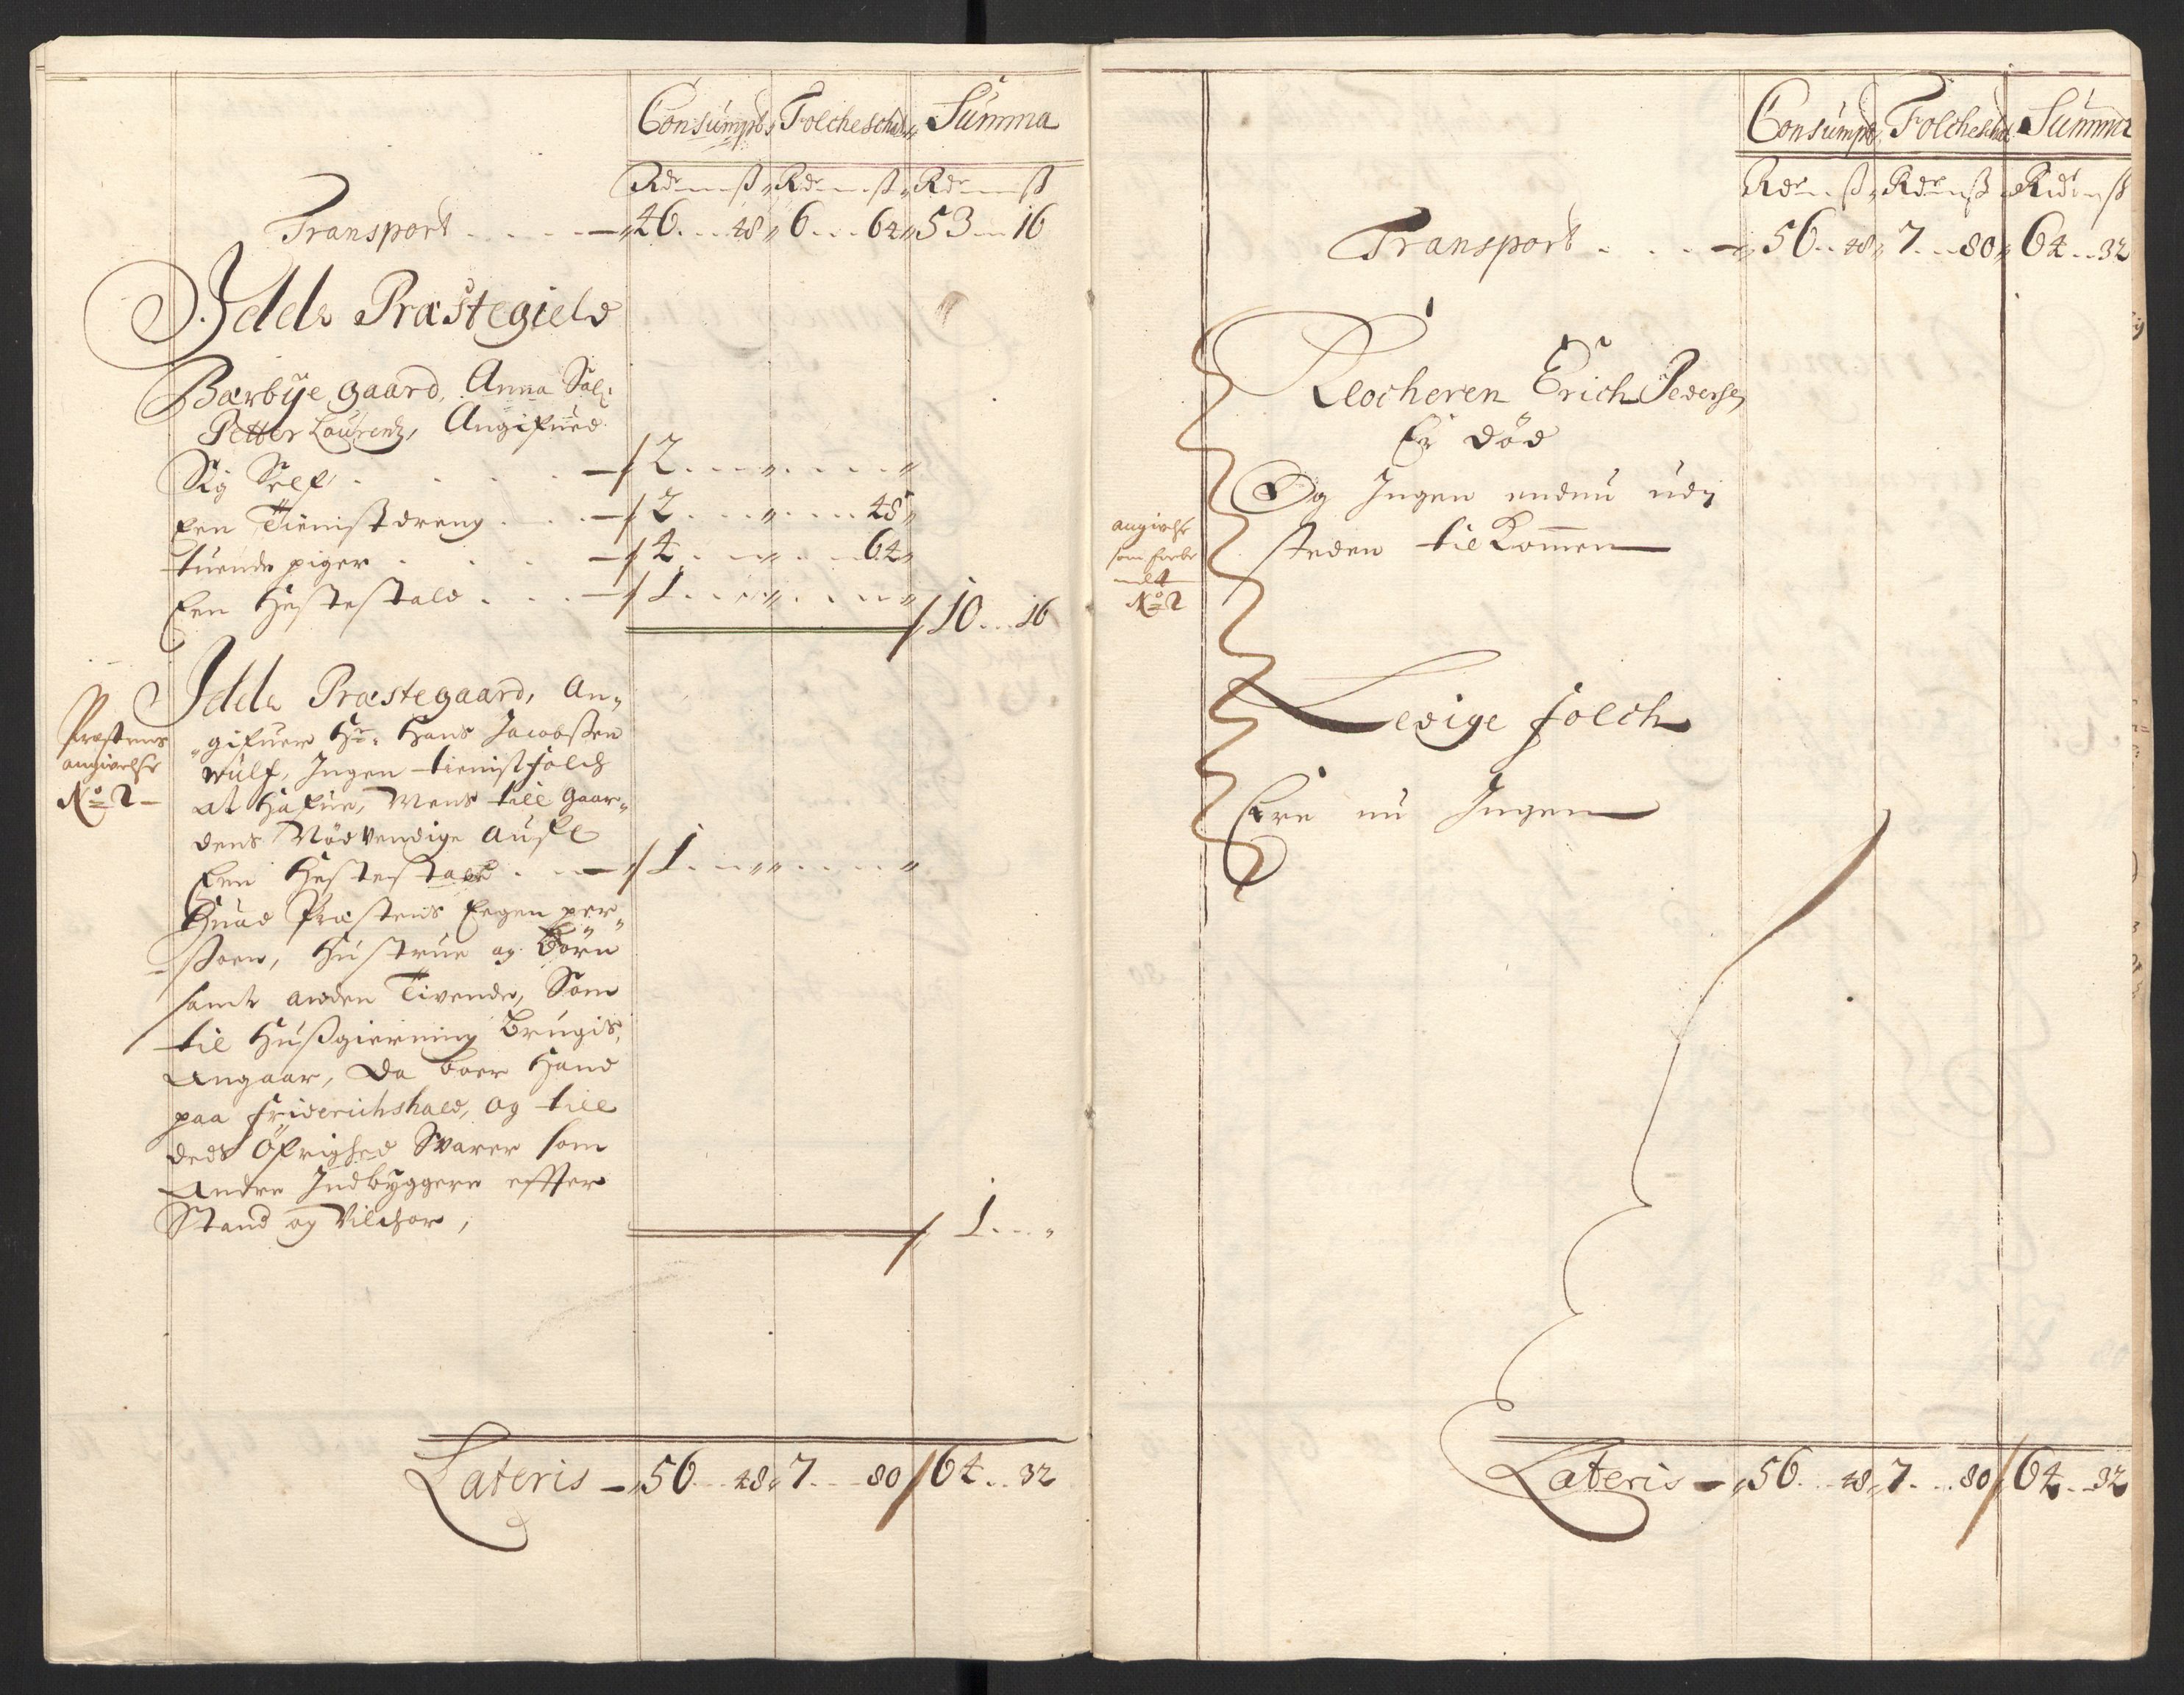 Consumpt, Folcheschat, Summa
Rdr ß, Rdr ß, Rdr ß
Transport - 46 48 6 64 53 16
Idde Præstegield
Bærbye gaard, Anna Sal:
Petter Laurentz, Angifued
Sig Self 2
Een Tienistdreng 2 48
tuende piger 4 64
Een Hestestald 1
10 16
Idde Præstegaard, An-
Præstens
angivelse
No 2
gifuer Hr. Hans Jacobssen
Wulf, Ingen tienistfolch
at hafue, Mens till gaar-
dens Nødvendige Aufl
Een Hestestald 1
Huad Præstens Eegen per-
ssoen, Hustrue og Børn
samt anden Tivende, Som
til Hussgierning Brugis,
Angaar, da boer Hand
paa Friderichshald, og till
deds Øfrighed Svarer som
Andre Indbyggere effter
Stand og Vilchor,
1
Lateris - 56 48 7 80 64 32
Consumpt, Folcheschat Summa
Rdr ß, Rdr ß Rdr ß
Transport - 56 48 7 80 64 32
Klocheren Erich Pedersen
Er død
Og Ingen endnu udj
steden tilKommen
angivelse
No 2
Ledige folch
Ere nu Ingen
Lateris - 56 48 7 80 64 32